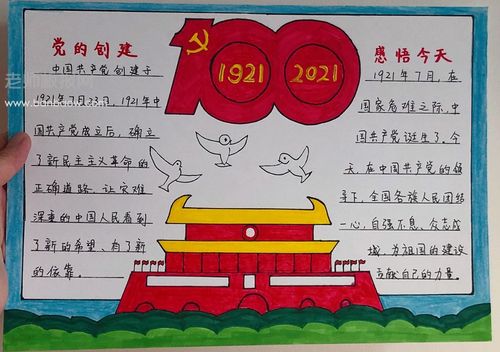 党的创建
中国共产党创建于
1921年7月23日,1921年中
国共产党成立后,确立
了新民主主义革命的
正确道路,让灾难
深重的中国人民看到
了新的希望、有了新
的依靠。
100
1921
2021
感悟今天
1921年7月,在
国家危难之际,中
国共产党诞生了。今
天,在中国共产党的领
导下,全国各族人民团结
一心,自强不息,众志成
城,为祖国的建设
贡献自己的力量。